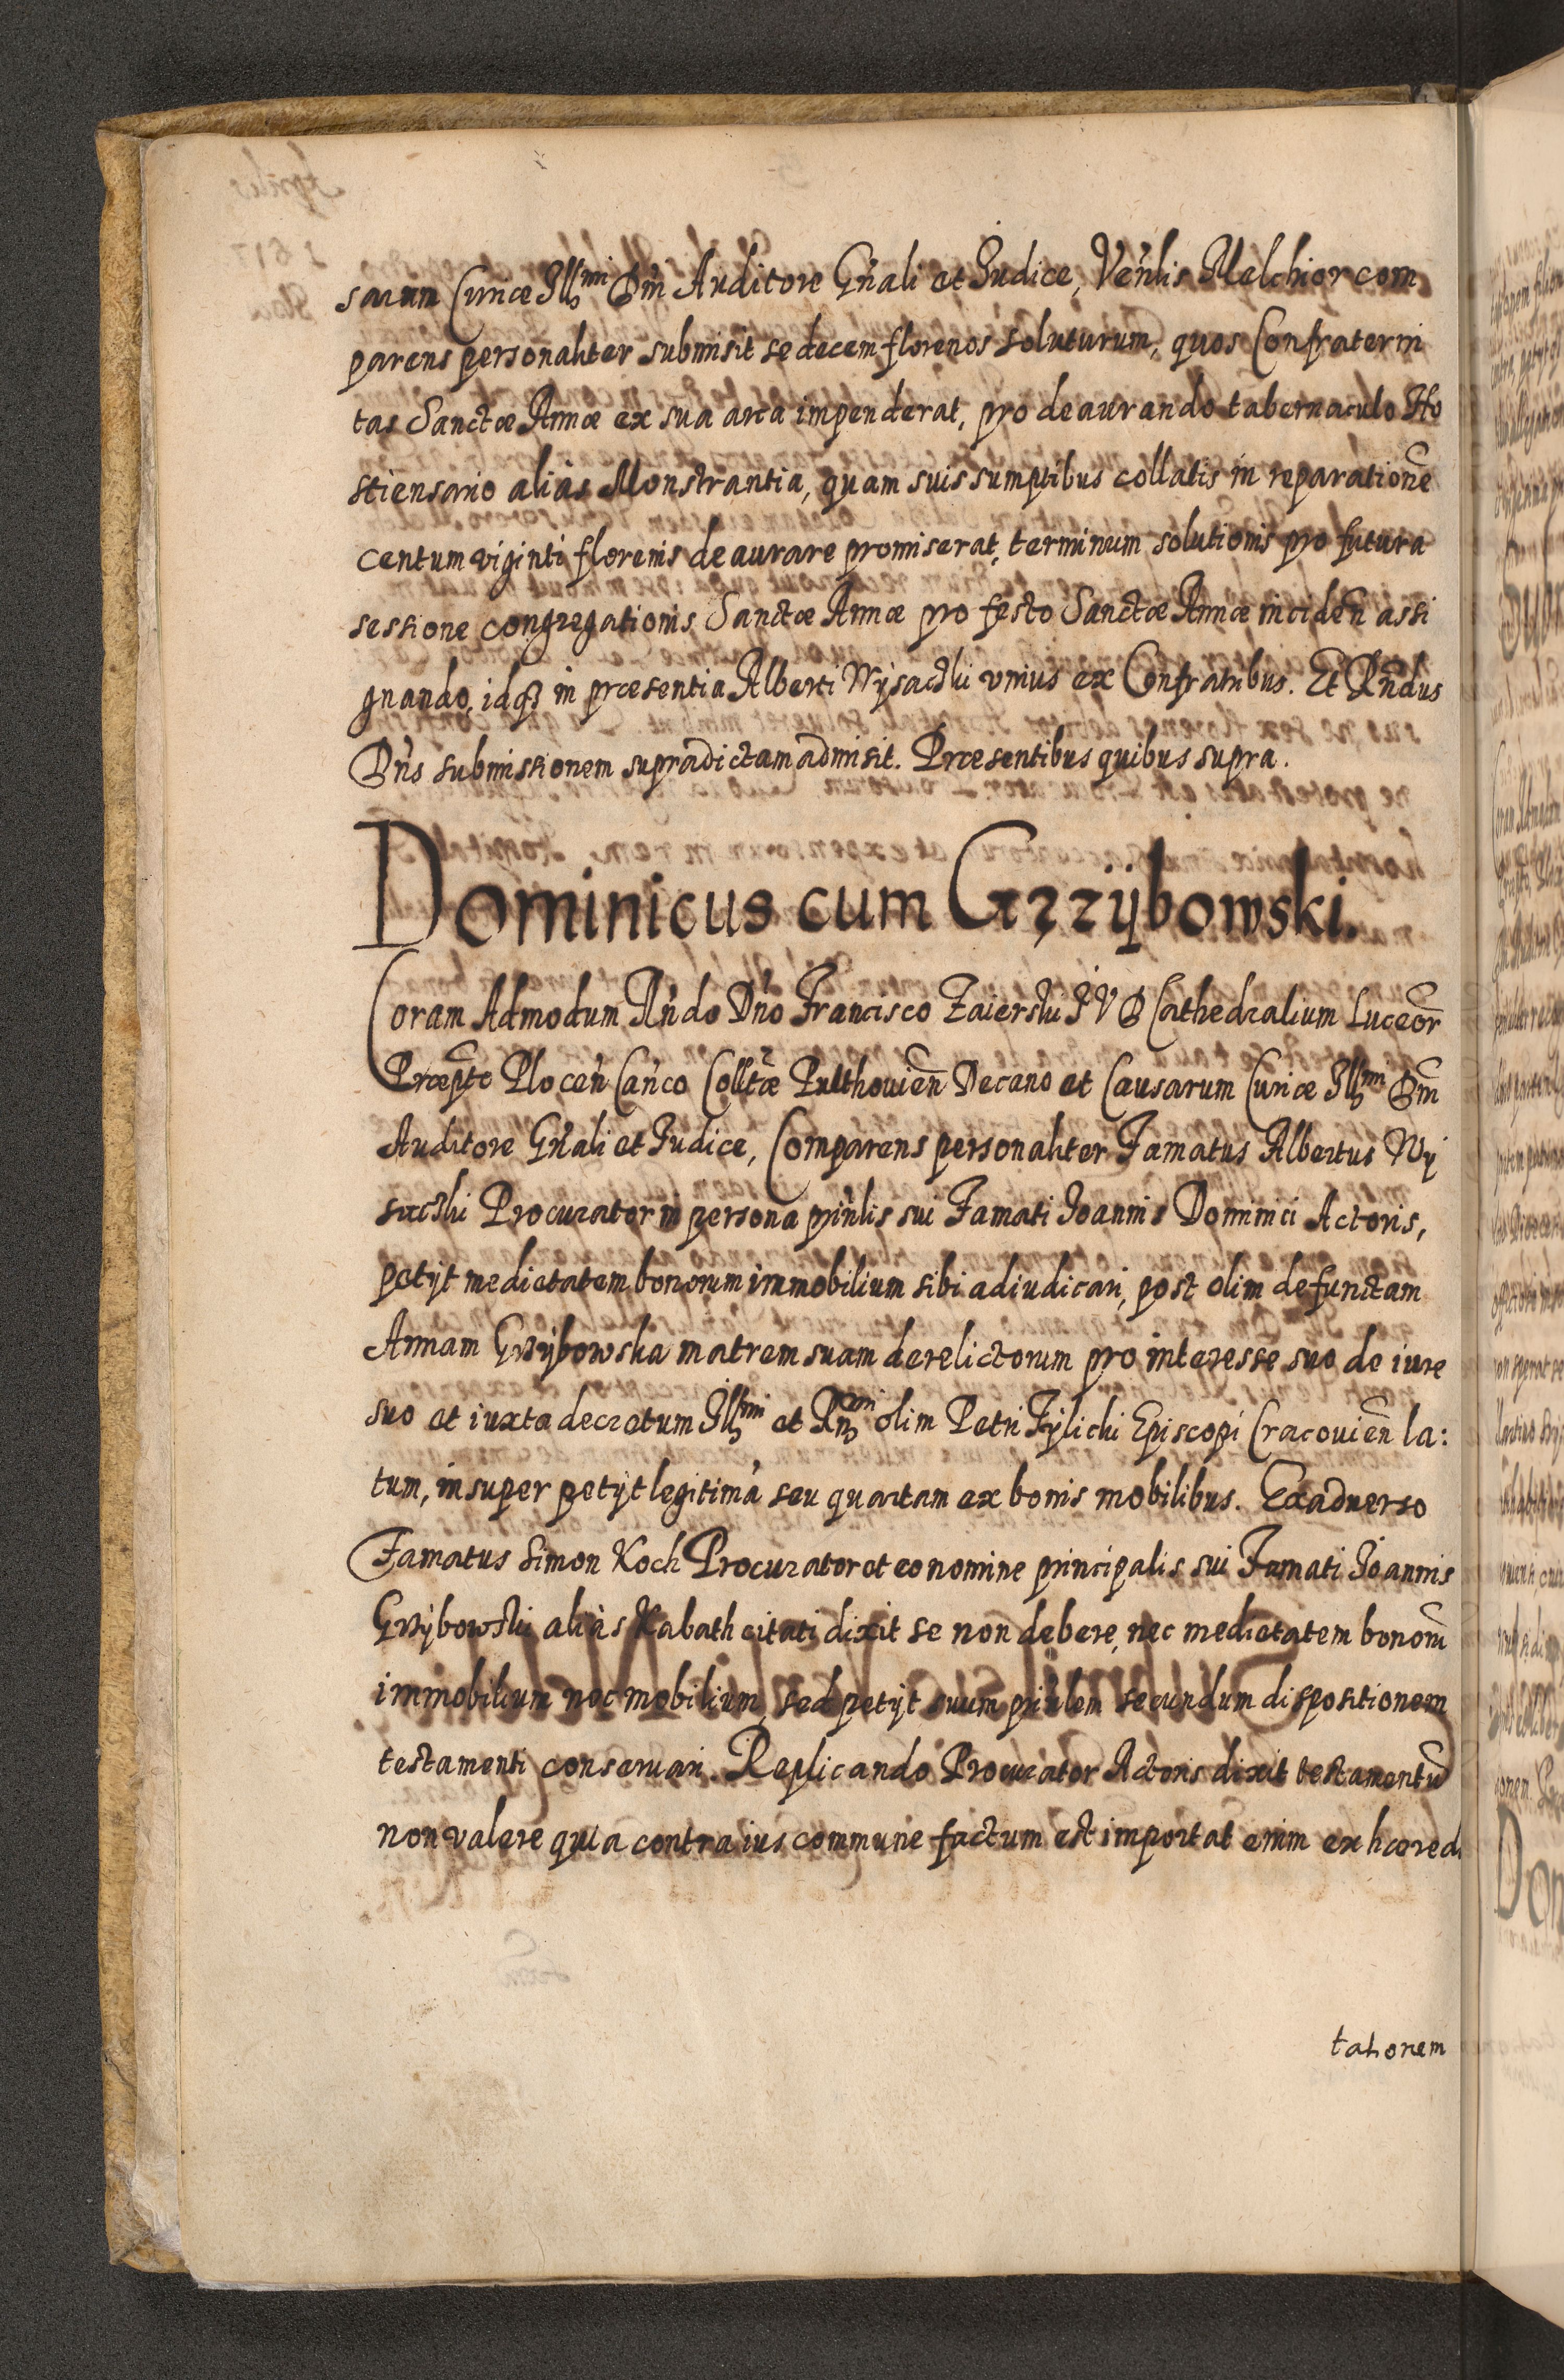 sarum Curiæ Illmi Dni Auditore Gñali et Iudice, Veñlis Melchior com
parens personaliter submisit se decem florenos soluturum, quos Confraterni
tas Sanctæ Annæ ex sua arca impenderat, pro deaurando tabernaculo Ho
stiensario aliàs Monstrantia, quam suis sumptibus collatis in reparationẽ
centum viginti florenis deaurare promiserat, terminum solutionis pro futura
sessione congregationis Sanctæ Annæ pro festo Sanctæ Annæ inciden̄ assi
gnando, idq3 in præsentia Alberti Wÿsaczki vnius ex Confratribus. Et Rñdus
Dñs submissionem supradictam admisit. Præsentibus quibus supra.
Dominicus cum Grzÿbowski.
Coram Admodum Rñdo Dño Francisco Zaierski I V D Cathedralium Luceor̄
Præpto Plocen̄ Cañco Colltæ Pulthouien̄ Decano et Causarum Curiæ Illmi Dni
Auditore Gñali et Iudice, Comparens personaliter Famatus Albertus Wÿ
saczki Procurator in persona priñlis sui Famati Ioannis Dominici Actoris,
petÿt medietatem bonorum immobilium sibi adiudicari, post olim defunctam
Annam Grzÿbowska matrem suam derelictorum pro interesse suo de iure
suo et iuxta decretum Illmi et Rñmi olim Petri Tÿlichi Episcopi Cracouien̄ la:
tum, insuper petÿt legitimã seu quartam ex bonis mobilibus. Ex aduerso
Famatus Simon Koch Procurator et eo nomine principalis sui Famati Ioannis
Grzÿbowski aliàs Kabath citati dixit se non debere, nec medietatem bonorũ
immobilium nec mobilium, sed petÿt suum priñlem secundum dispositionem
testamenti conseruari. Replicando Procurator Actoris dixit testamentũ
non valere quia contra ius commune factum est importat enim exhæredi
tationem